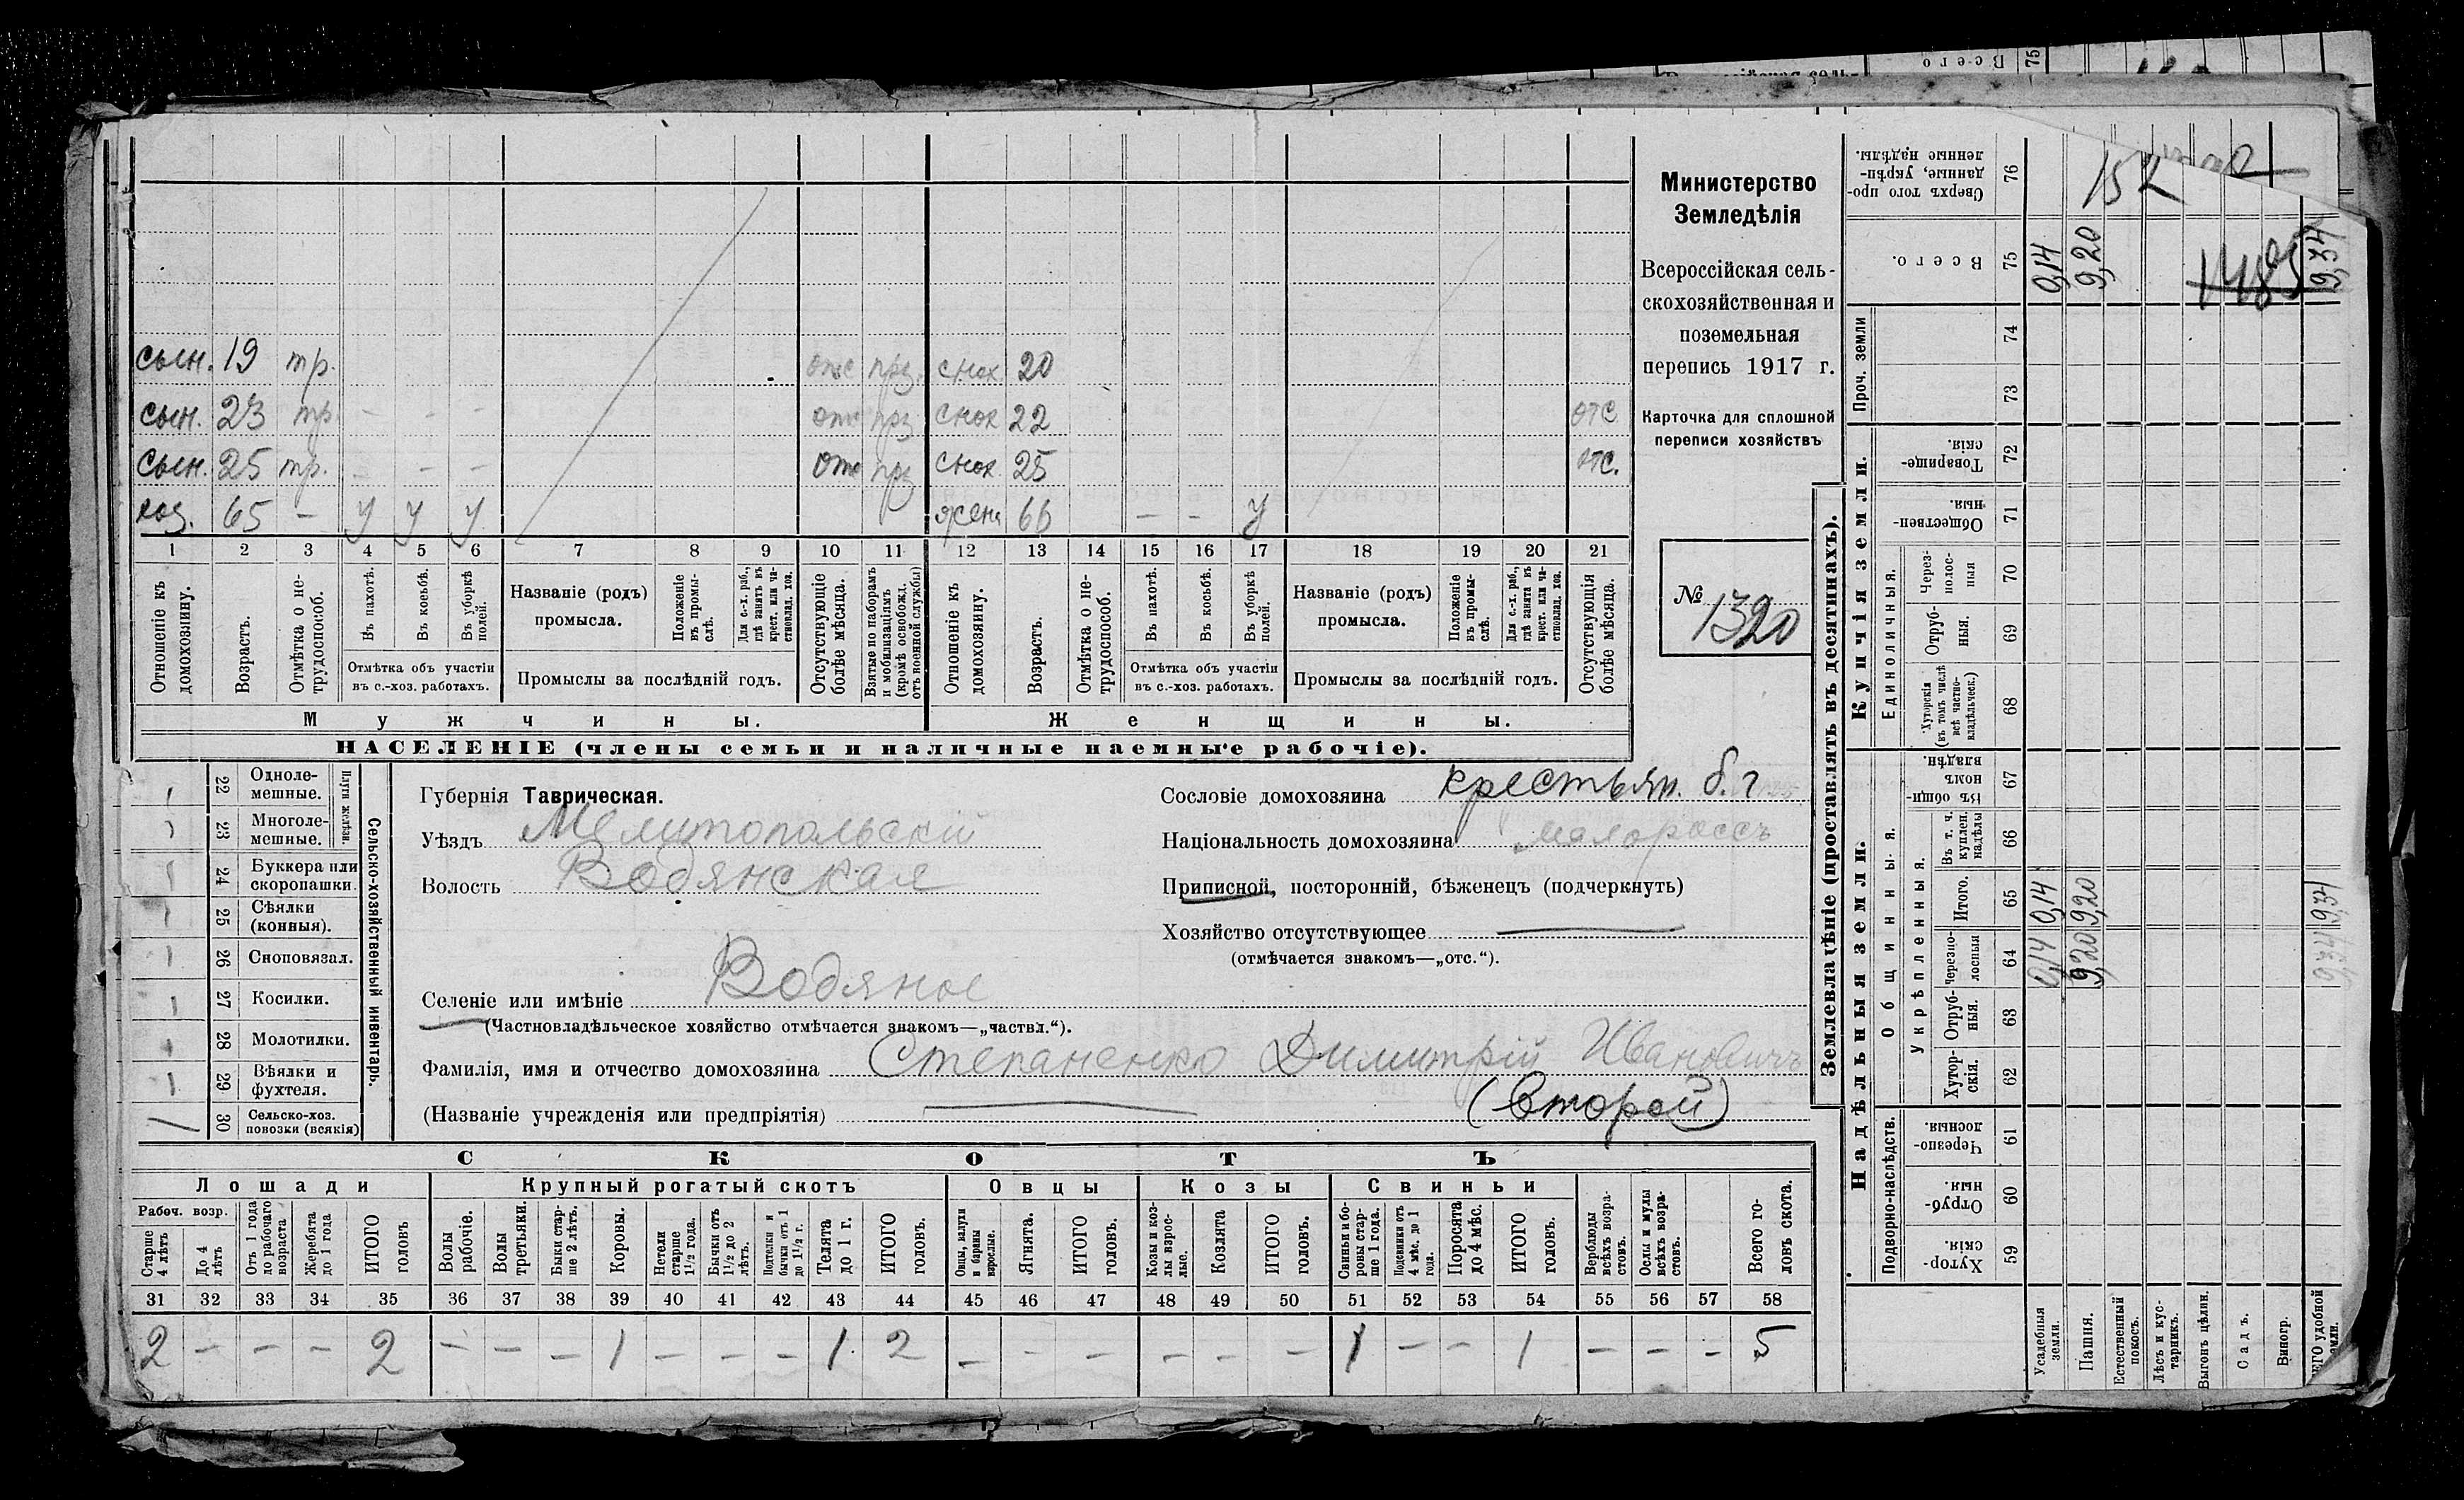 сын. 19 тр. отс прз. снох 20
сын. 23 тр. - - - отс прз снох 22 отс
сын. 25 тр. - - - отс прз снох. 25 отс.
хоз. 65 - у у у жена 66 - - у
1 2 3 4 5 6 7 8 9 10 11 12 13 14 15 16 17 18 19 20 21
Отношеніе къ домохозяину.
Возрастъ.
Отмѣтка о нетрудоспособ.
Въ пахотѣ.
Въ косьбѣ.
Въ уборкѣ полей.
Отмѣтка объ участіи
въ с.-хоз. работахъ.
Названіе (родъ)
промысла.
Положеніе въ промыслѣ.
Для с.-х. раб., гдѣ занятъ въ крест. или частновлад. хоз.
Промыслы за послѣдній годъ.
Отсутствующіе болѣе мѣсяца.
Взятые по наборамъ и мобилизаціямъ (кромѣ освобожд. отъ военной службы)
Отношеніе къ домохозяину.
Возрастъ.
Отмѣтка о нетрудоспособ.
Въ пахотѣ.
Въ косьбѣ.
Въ уборкѣ полей.
Отмѣтка объ участіи
въ с.-хоз. работахъ.
Названіе (родъ)
промысла.
Положеніе въ промыслѣ.
Для с.-х. раб., гдѣ занята въ крест. или частновлад. хоз.
Промыслы за послѣдній годъ.
Отсутствующія болѣе мѣсяца.
Мужчины.
Женщины.
НАСЕЛЕНІЕ (члены семьи и наличные наемные рабочіе).
Министерство
Земледѣлія
Всероссійская сель-
скохозяйственная и
поземельная
перепись 1917 г.
Карточка для сплошной
переписи хозяйствъ
№ 1320
22 Одноле-
мешные.
23 Многоле-
мешные.
Плуги желѣзн.
24 Буккера или
скоропашки.
25 Сѣялки
(конныя).
26 Сноповязал.
27 Косилки.
28 Молотилки.
29 Вѣялки и
фухтеля.
30 Сельско-хоз.
повозки (всякія)
Сельско-хозяйственный инвентарь.
Губернія Таврическая.
Уѣздъ Мелитопольскій
Волость Водянская
Селеніе или имѣніе Водяное
(Частновладѣльческое хозяйство отмѣчается знакомъ—„частвл.“).
Фамилія, имя и отчество домохозяина Степаненко Димитрій Ивановичъ
(Названіе учрежденія или предпріятія) (Второй)
Сословіе домохозяина крестьян. б. г
Національность домохозяина малороссъ
Приписной, посторонній, бѣженецъ (подчеркнуть)
Хозяйство отсутствующее
(отмѣчается знакомъ—„отс.“).
СКОТЪ
Лошади
Крупный рогатый скотъ
Овцы
Козы
Свиньи
Рабоч. возр.
Старше 4 лѣтъ
До 4 лѣтъ
Отъ 1 года до рабочаго возраста
Жеребята до 1 года
ИТОГО головъ
Волы рабочіе.
Волы третьяки.
Быки старше 2 лѣтъ.
Коровы.
Нетели старше 1½ года.
Бычки отъ 1½ до 2 лѣтъ.
Подтелки и бычки отъ 1 до 1½ г.
Телята до 1 г.
ИТОГО головъ.
Овцы, валухи и бараны взрослые.
Ягнята.
ИТОГО головъ.
Козы и козлы взрослые.
Козлята
ИТОГО головъ.
Свиньи и боровы старше 1 года.
Подсвинки отъ 4 мѣс. до 1 года.
Поросята до 4 мѣс.
ИТОГО головъ.
Верблюды всѣхъ возрастовъ.
Ослы и мулы всѣхъ возрастовъ.
Всего головъ скота.
31 32 33 34 35 36 37 38 39 40 41 42 43 44 45 46 47 48 49 50 51 52 53 54 55 56 57 58
2 - - - 2 - - - 1 - - - 1. 2 - - - - - - 1 - - 1 - - - 5
Землевладѣніе (проставлять въ десятинахъ).
Купчія земли.
Надѣльныя земли.
Сверхъ того проданные, укрѣпленные надѣлы. 76
Всего. 75 0,14 9,20 9,34
Проч. земли
74
73
Товарищескія. 72
Общественныя. 71
Единоличныя.
Черезполосныя 70
Отрубныя. 69
Хуторскія (въ томъ числѣ всѣ частновладѣльческ.) 68
Общинныя.
Въ общинномъ владѣн. 67
Укрѣпленныя.
Въ т. ч. куплен. надѣлы 66
Итого. 65 0,14 9,20 9,34
Черезполосныя 64 0,14 9,20 9,34
Отрубныя. 63
Хуторскія. 62
Подворно-наслѣдств.
Черезполосныя. 61
Отрубныя. 60
Хуторскія. 59
Усадебныя земли.
Пашня.
Естественный покосъ.
Лѣсъ и кустарникъ.
Выгонъ цѣлин.
Садъ.
Виногр.
Всего 75